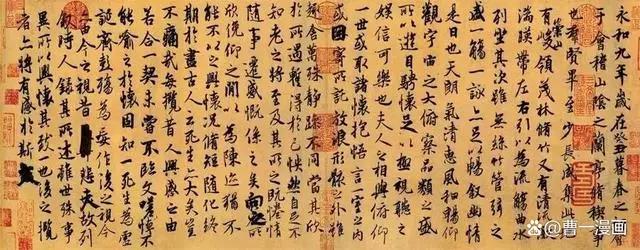 永和九年歲在癸丑暮春之初會
于會稽山陰之蘭亭脩稧事
也羣賢畢至少長咸集此地
有崇山峻領茂林脩竹又有清流激
湍暎帶左右引以為流觴曲水
列坐其次雖無絲竹管弦之
盛一觴一詠亦足以暢敘幽情
是日也天朗氣清惠風和暢仰
觀宇宙之大俯察品類之盛
所以遊目騁懷足以極視聽之
娛信可樂也夫人之相與俯仰
一世或取諸懷抱悟言一室之內
或因寄所託放浪形骸之外雖
趣舍萬殊靜躁不同當其欣
於所遇暫得於己怏然自足不
知老之將至及其所之既惓情
隨事遷感慨係之矣向之所
欣俛仰之間以為陳迹猶不
能不以之興懷況脩短隨化終
期於盡古人云死生亦大矣豈
不痛哉每攬昔人興感之由
若合一契未嘗不臨文嗟悼不
能喻之於懷固知一死生為虛
誕齊彭殤為妄作後之視今
亦由今之視昔悲夫故列
敘時人錄其所述雖世殊事
異所以興懷其致一也後之攬
者亦將有感於斯文
@曹一漫画